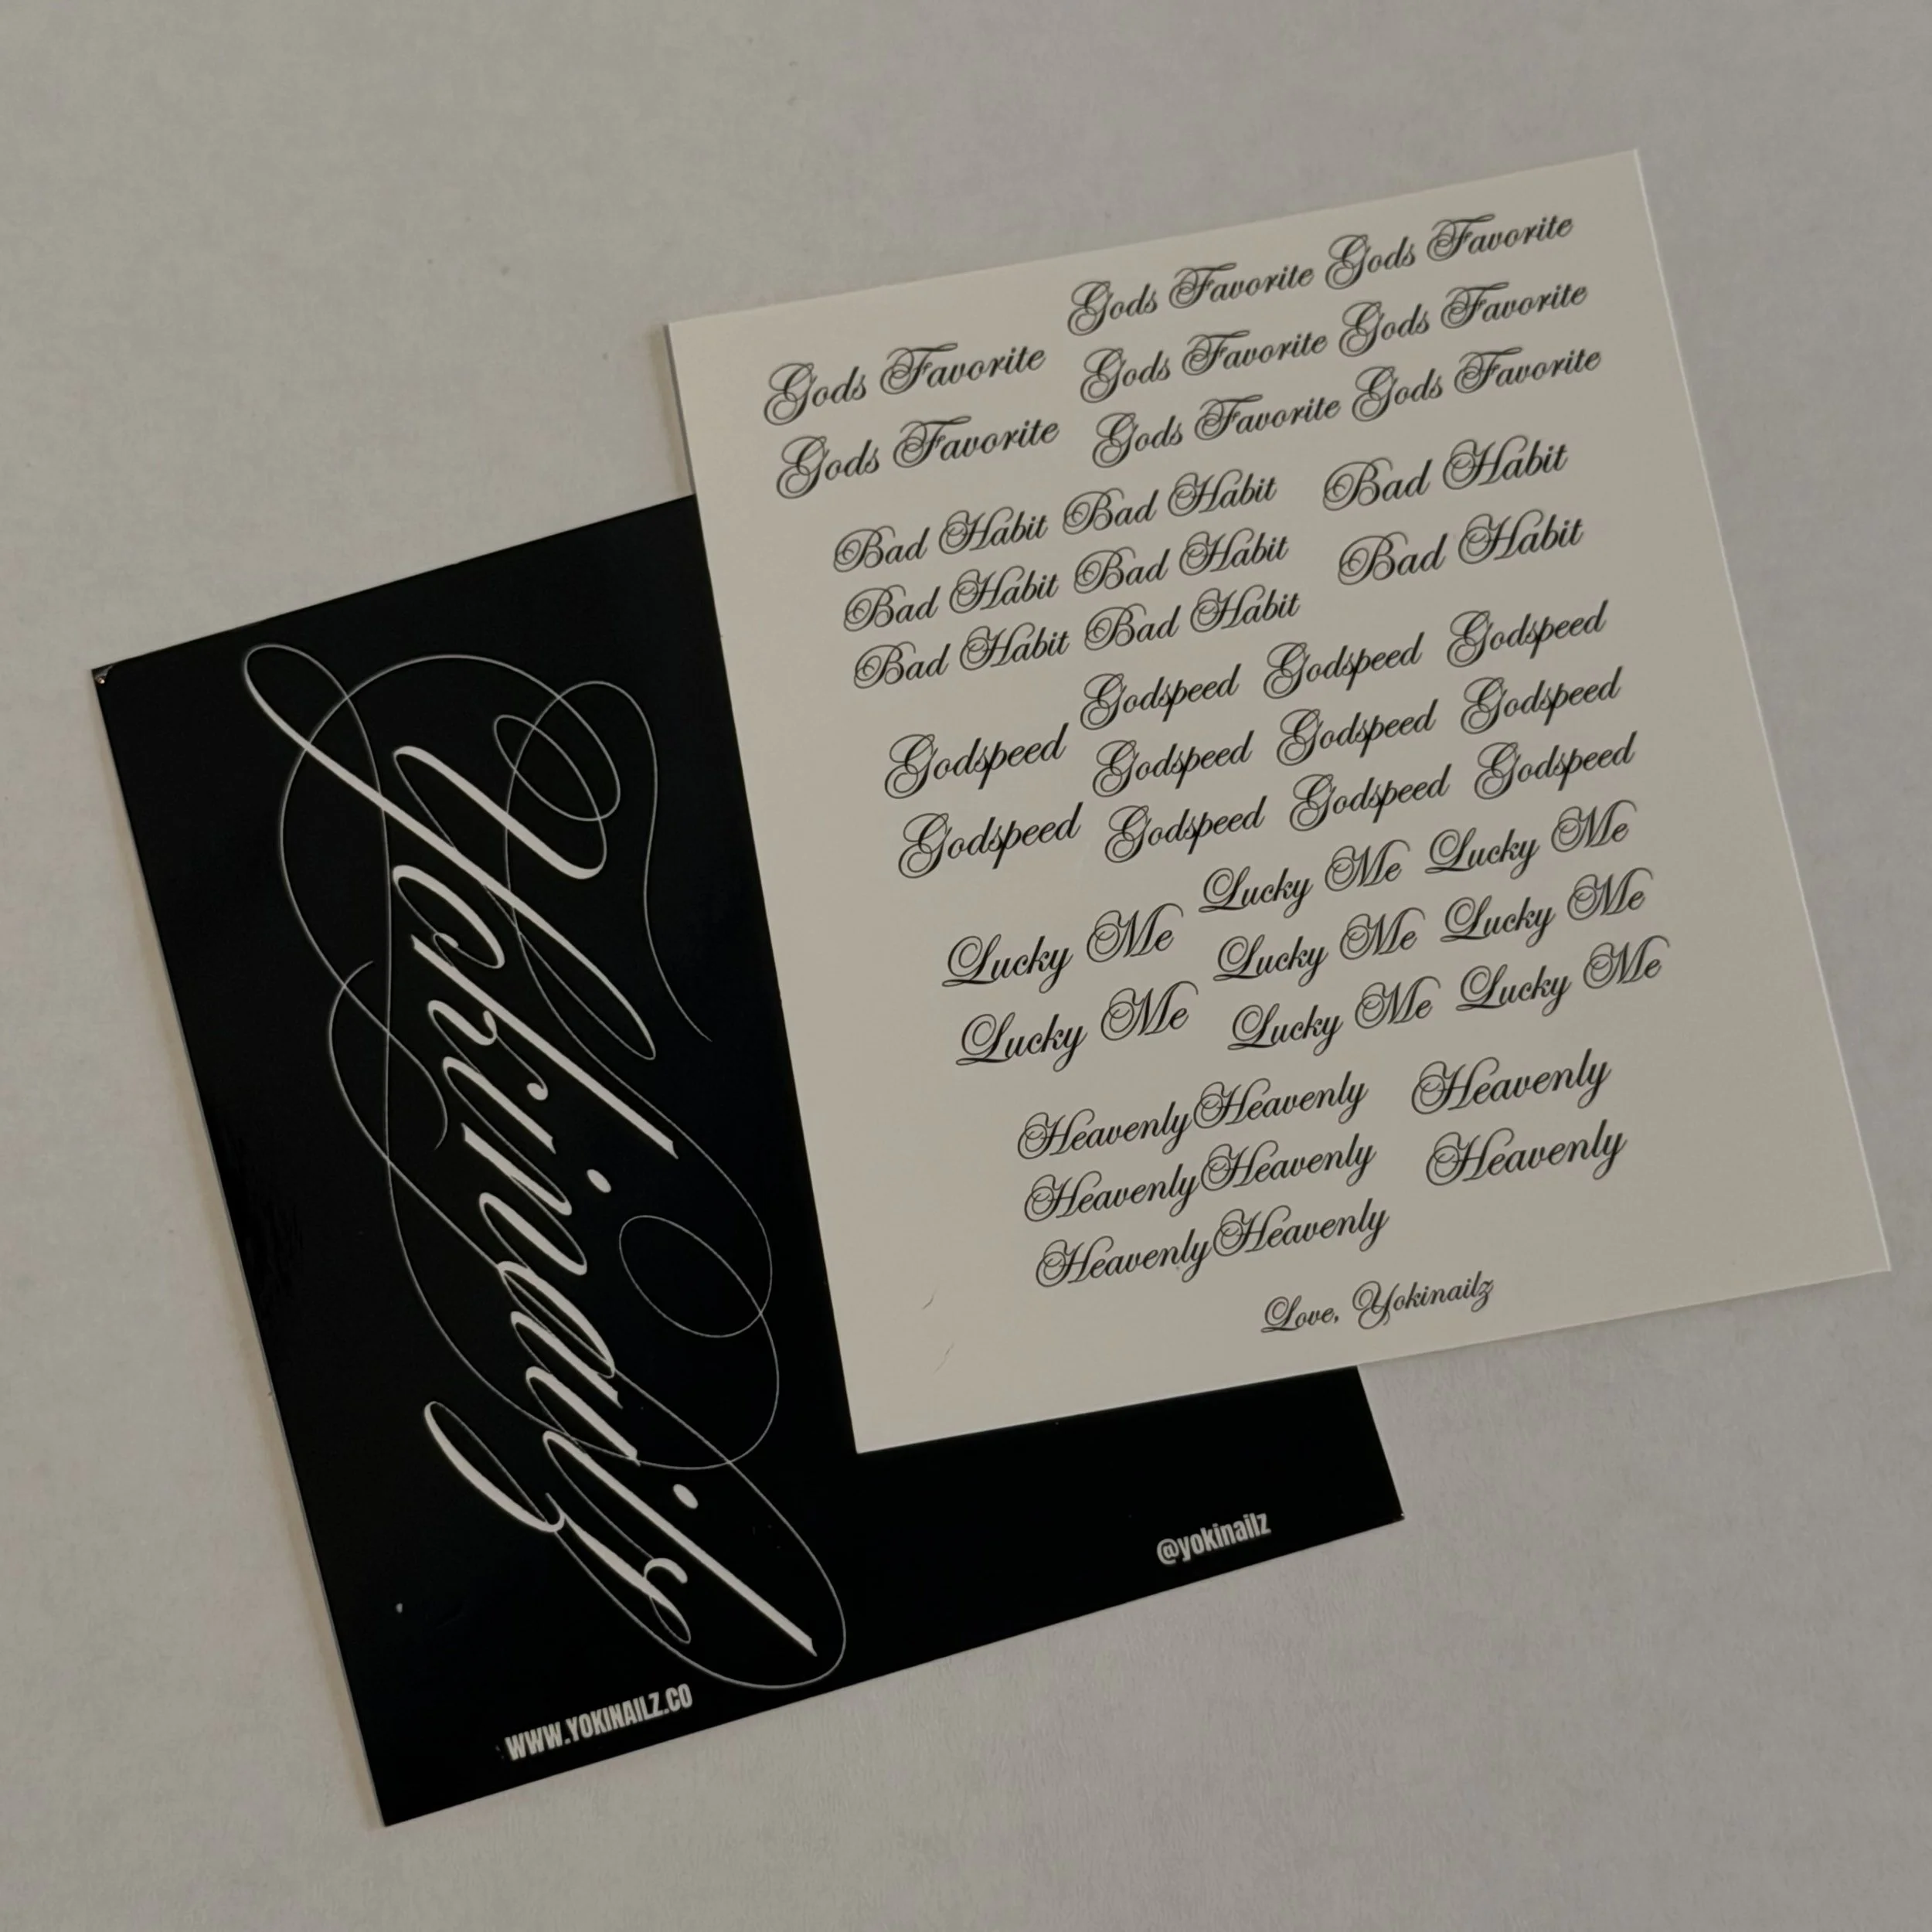 Gods Favorite Gods Favorite
Gods Favorite Gods Favorite Gods Favorite
Gods Favorite Gods Favorite Gods Favorite
Bad Habit Bad Habit Bad Habit
Bad Habit Bad Habit Bad Habit
Bad Habit Bad Habit
Godspeed Godspeed Godspeed
Godspeed Godspeed Godspeed Godspeed
Godspeed Godspeed Godspeed Godspeed
Lucky Me Lucky Me
Lucky Me Lucky Me Lucky Me
Lucky Me Lucky Me Lucky Me
Heavenly Heavenly Heavenly
Heavenly Heavenly Heavenly
Heavenly Heavenly
Love, Yokinailz
Yokinailz
@yokinailz
WWW.YOKINAILZ.CO